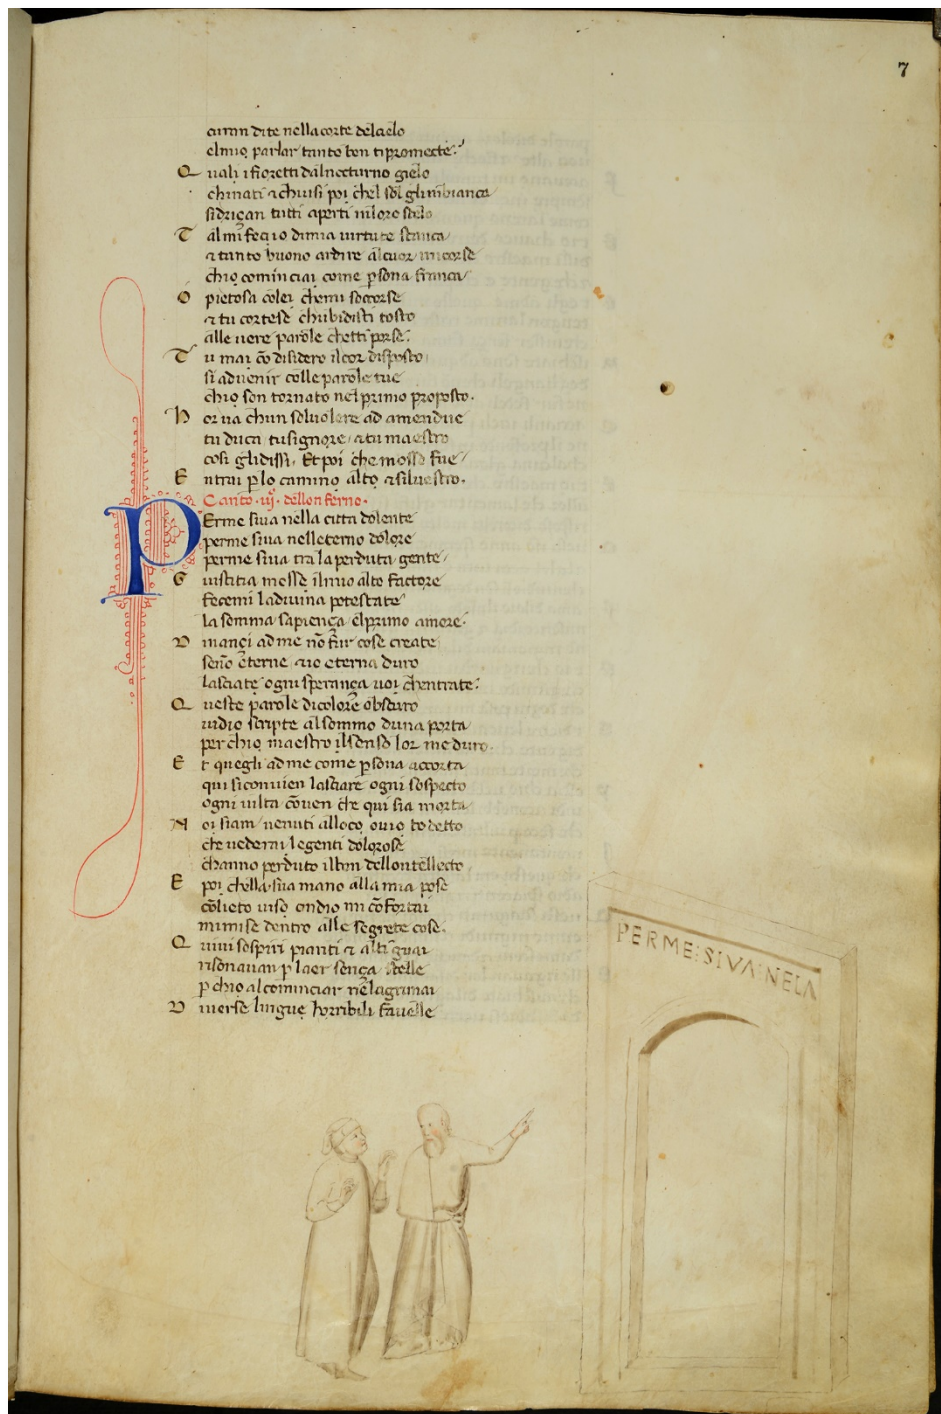 7
curan dite nella corte del cielo
el mio parlar tanto ben ti promecte.
Quali i fioretti dal nocturno gielo
chinati & chiusi poi chel sol gl imbianca
si driçan tutti aperti in loro stelo
Tal mi fec io di mia virtute stanca
& tanto buono ardire al cuor mi corse
ch io cominciai come psona franca
O pietosa colei che mi soccorse
& tu cortese ch ubidisti tosto
alle vere parole che tti porse.
Tu m ai cō disidero il cor disposto
si al venir colle parole tue
ch io son tornato nel primo proposto.
Hor va ch un sol volere ad amendue
tu duca tu signore & tu maestro
cosi gli dissi. Et poi che mosso fue
Entrai p lo camino alto & silvestro.
Canto .iij. dello nferno.
PEr me si va nella citta dolente
per me si va nell etterno dolore
per me si va tra la perduta gente
Giustitia mosse il mio alto factore
fecemi la divina potestate
la somma sapiença el primo amore.
Dinançi ad me nō fur cose create
se nō etterne & io etterna duro
lasciate ogni sperança voi ch entrate.
Queste parole di colore obscuro
vid io scripte al sommo d una porta
per ch io maestro il senso lor m e duro.
Et quegli ad me come psona accorta
qui si convien lasciare ogni sospecto
ogni vilta cōven che qui sia morta
Noi siam venuti al loco ov io t o detto
che vederai le genti dolorose
ch anno perduto il ben dello ntellecto
E poi che lla sua mano alla mia pose
cō lieto viso ond io mi cōfortai
mi mise dentro alle segrete cose.
Quivi sospiri pianti & alti guai
risonavan p l aer sença stelle
p ch io al cominciar ne lagrimai
Diverse lingue horribili favelle
PER ME : SI VA : NE LA